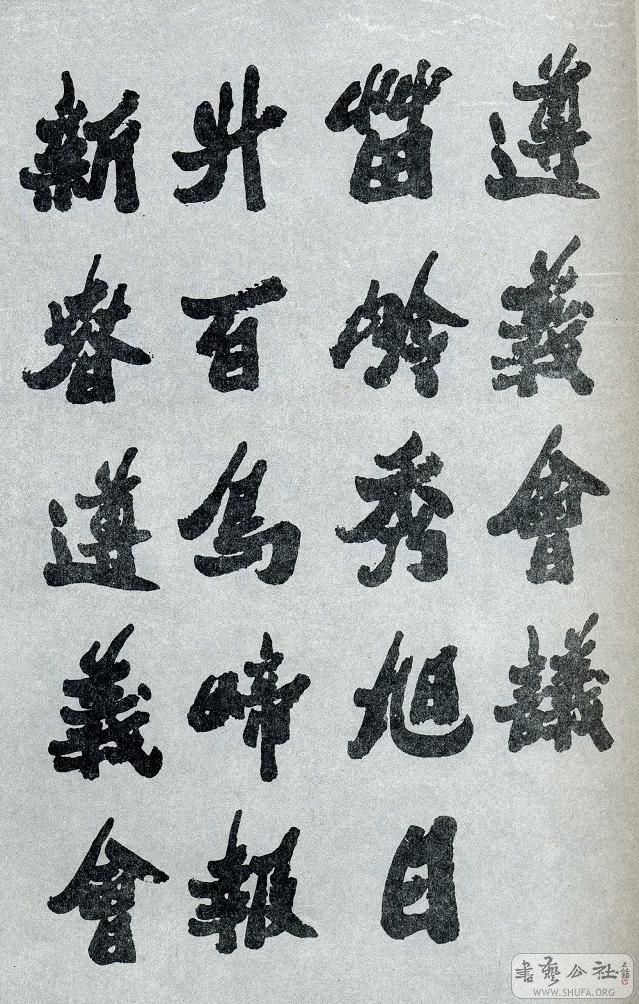 遵義會議
苗岭秀旭日
升百鳥啼報
新春遵義會
書藝公社
WWW.SHUFA.ORG